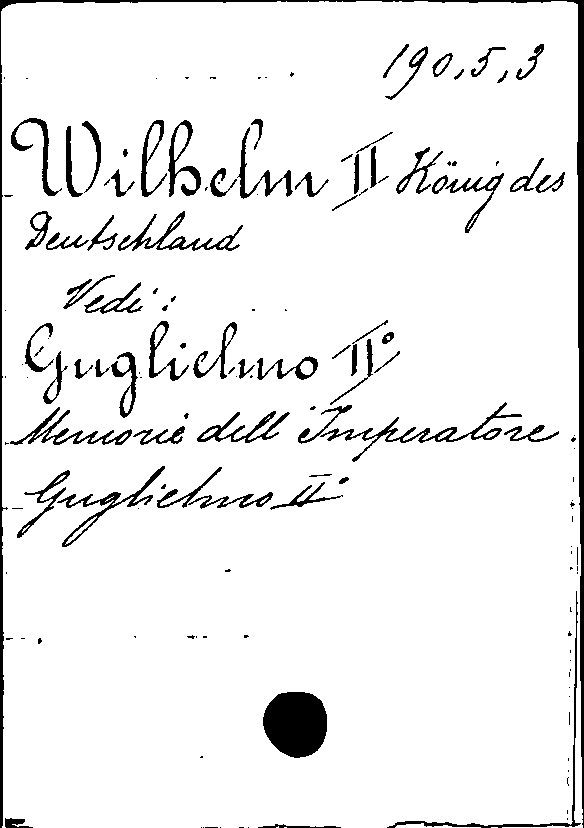 190,5,3
Wilhelm II König des
Deutschland
Vedi:
Guglielmo II°
Memorie dell'Imperatore.
Guglielmo II°